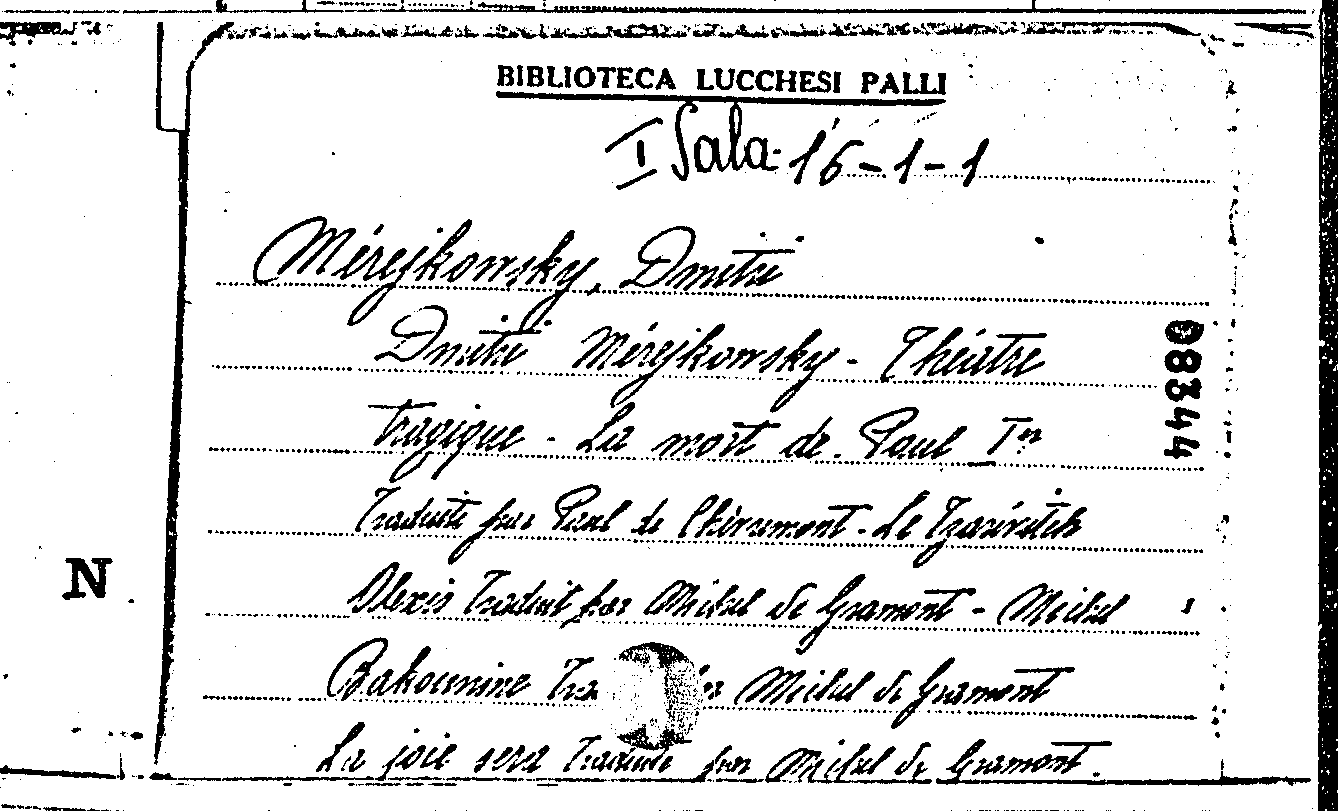 BIBLIOTECA LUCCHESI PALLI
I Sala 16-1-1
Mérejkowsky, Dmitri
Dmitri Mérejkowsky - Théâtre
tragique - La mort de Paul Ier
Traduite par Paul de Chèvremont - Le Tzarévitch
Alexis Traduit par Michel de Gramont - Michel
Bakounine par Michel de Gramont
La joie sera Traduite par Michel de Gramont.
08344
N